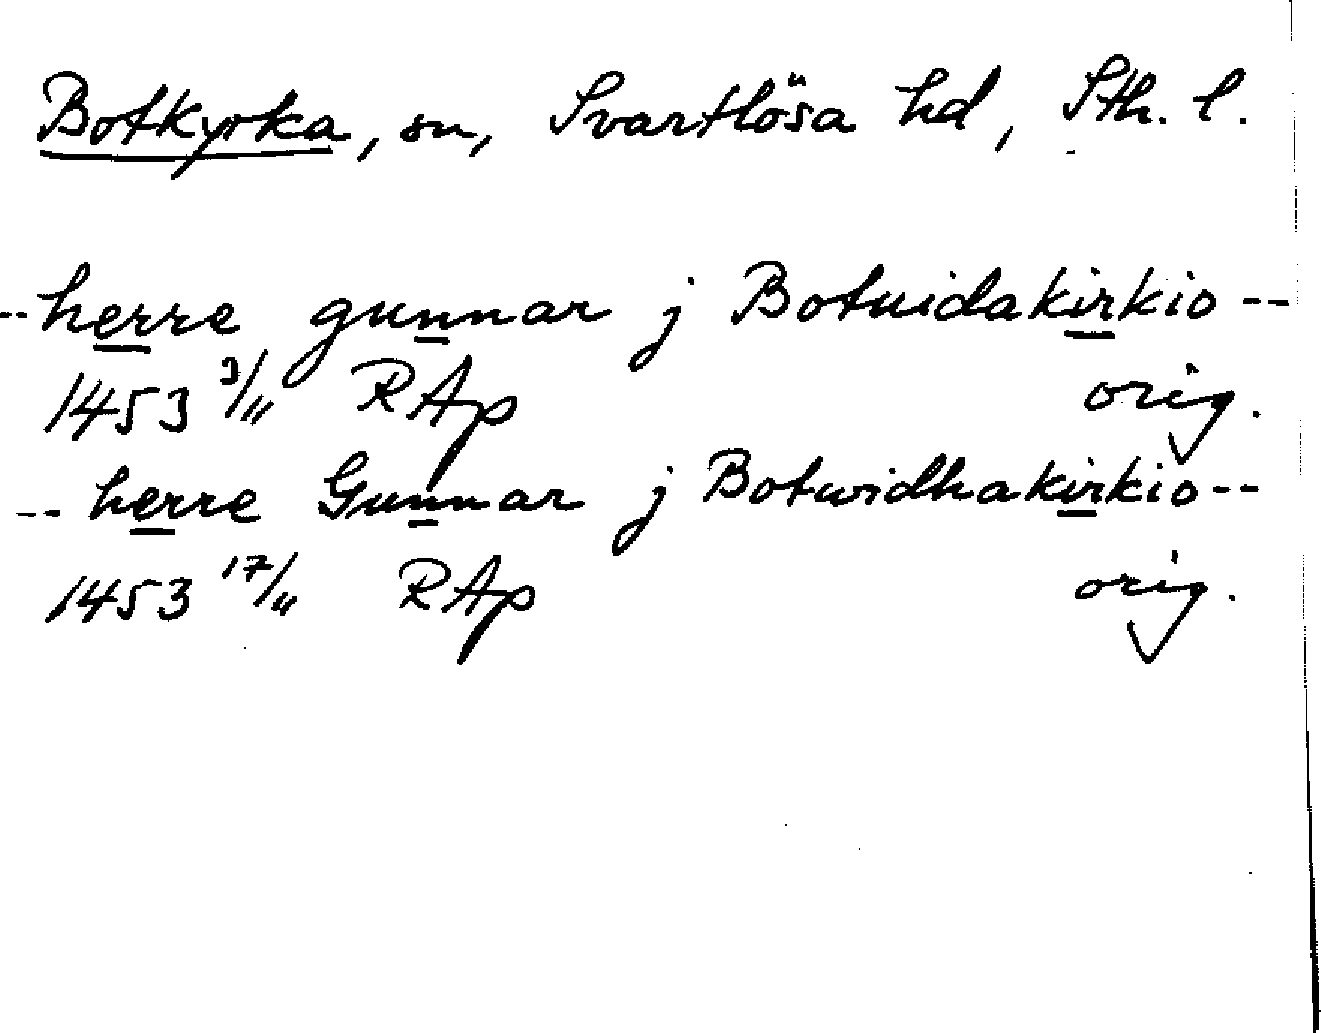 Botkyrka, sn, Svartlösa hd, Sth. l.
--herre gunnar j Botuidakirkio--
1453 3/11 RAp orig.
-- herre Gunnar j Botwidhakirkio--
1453 17/11 RAp orig.